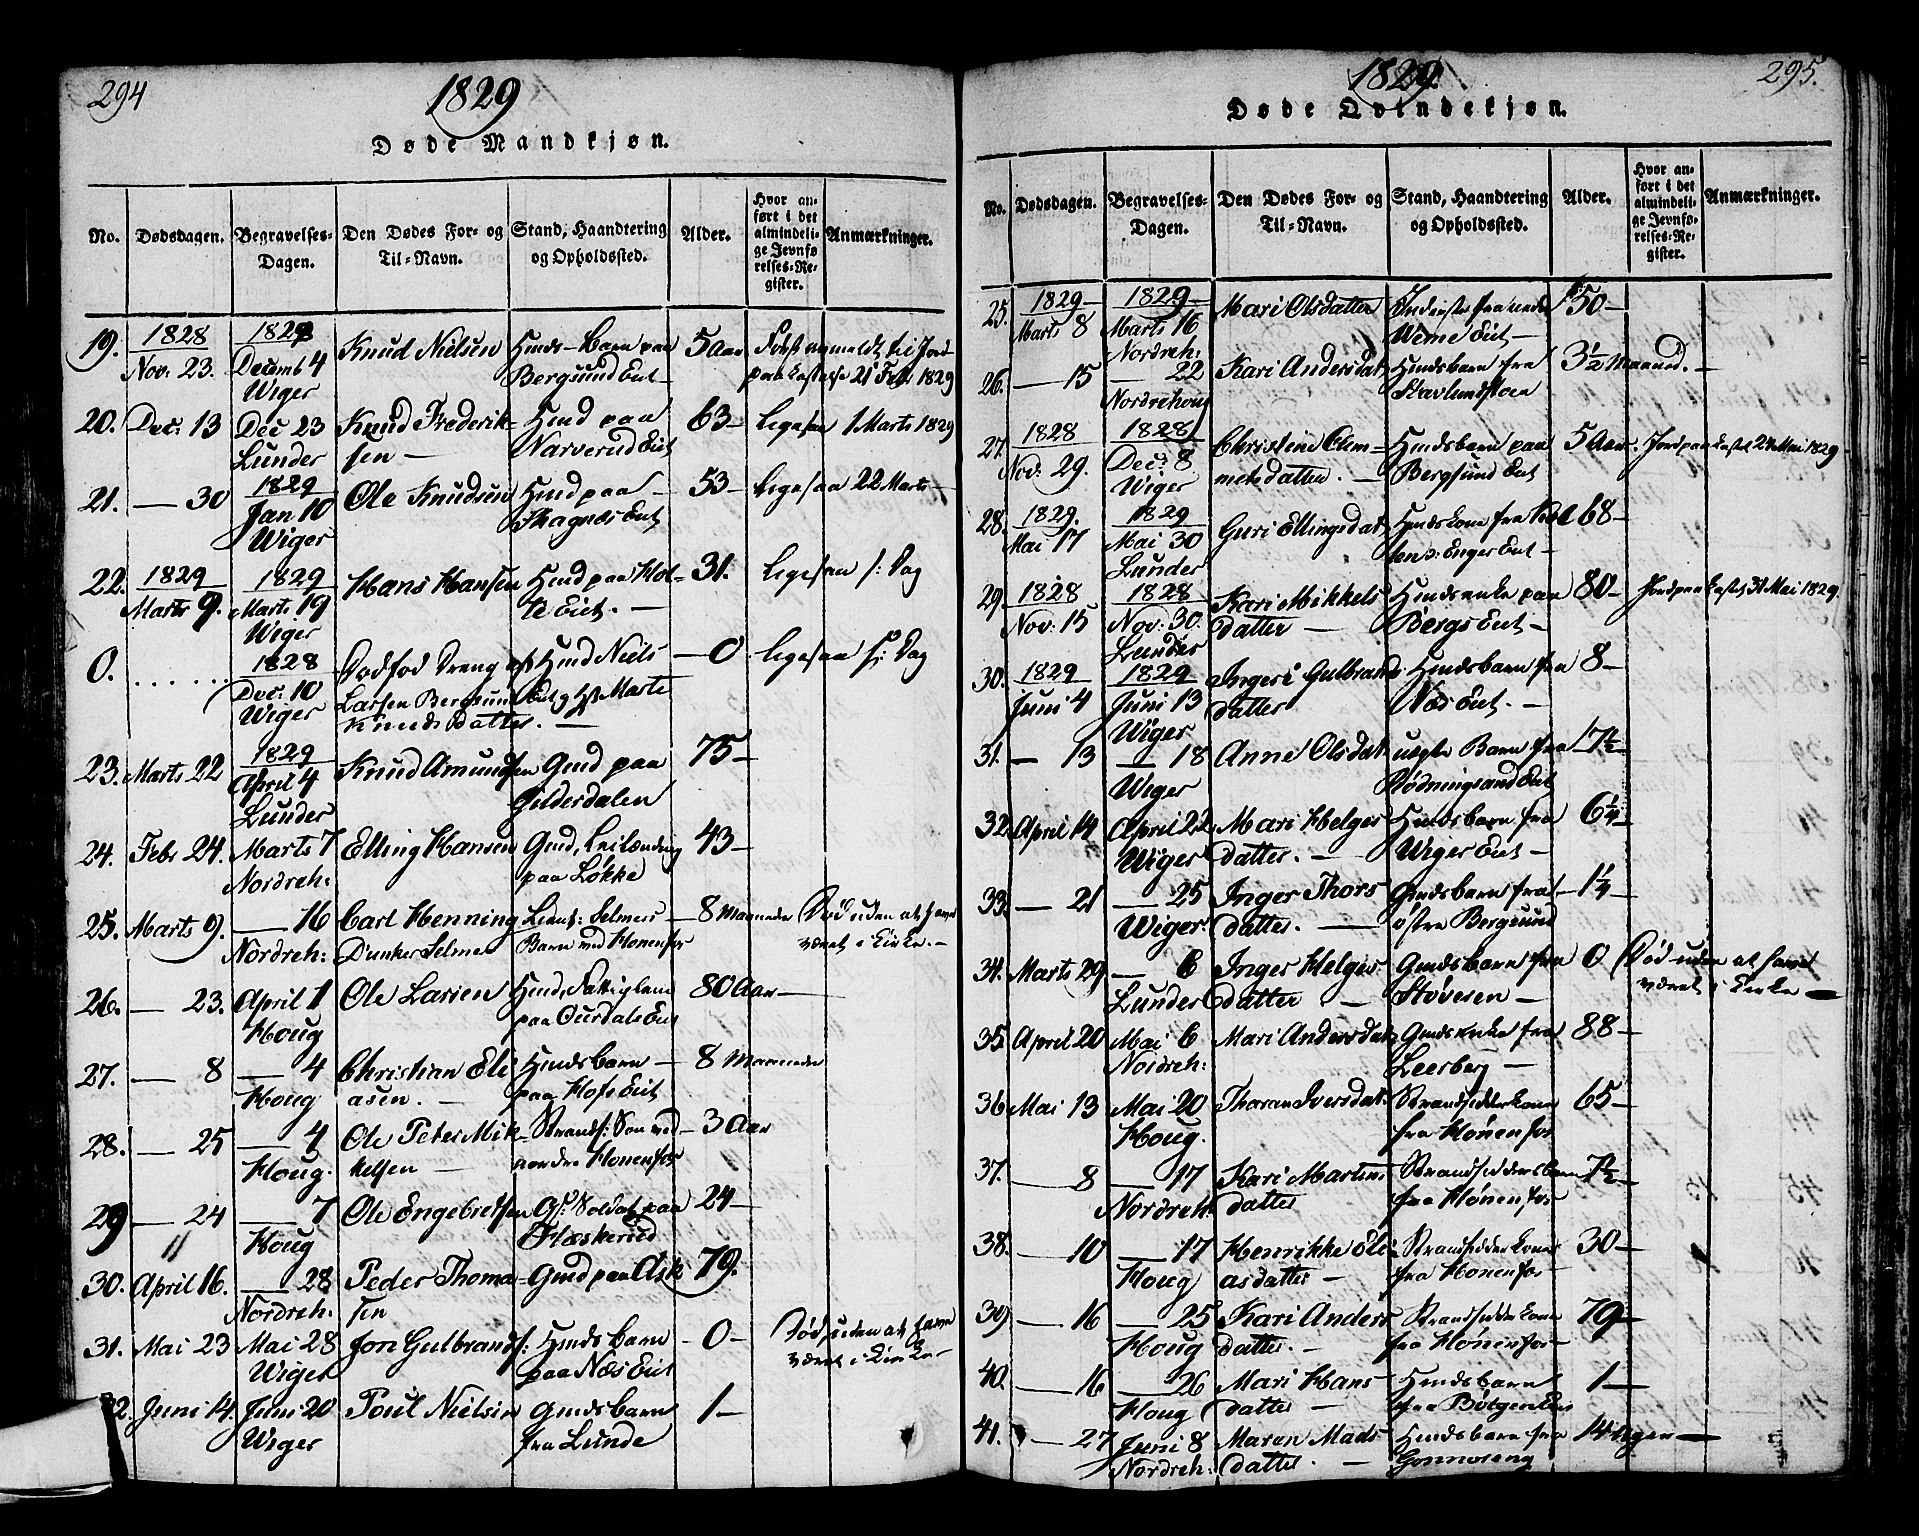 294
1829
Døde Mandkjøn.
No. Dødsdagen. Begravelses-Dagen. Den Dødes For- og Til-Navn. Stand, Haandtering og Opholdssted. Alder. Hvor anført i det almindelige Jevnførelses-Register. Anmærkninger.
19. 1828 Nov: 23. 1828 Decemb 4 Wiger Knud Nielsen Huusm-Barn paa Bergsund Eiet 5 Aar Først anmeldt til Jordpaakastelse 21 Febr 1829
20. Dec: 13 Dec 23 Lunder Knud Frederiksen Huusmd paa Narverud Eiet 63 ligesaa 1 Marts 1829
21. — 30 1829 Jan 10 Wiger Ole Knudsen Huusmd paa Skagnæs Eiet 53 ligesaa 22 Marts
22. 1829 Marts 9. 1829 Marts 19 Wiger Hans Hansen Hmd paa Eiet. 31. ligesaa s: Dag
0. 1828 Dec: 10 Wiger Dødfød Dreng af Hmd Niels Larsen Bergsund Eiet og H Marte Knudsdatter. 0 ligesaa s: Dag
23. Marts 22 1829 April 4 Lunder Knud Amundsen Gmd paa Gilderdalen 75
24. Febr 24. Marts 7 Nordreh: Elling Hansen Gmd, Leilænding paa Løkke 43
25. Marts 9. — 16 Nordreh: Carl Henning Dunker Selmer Lieut: Selmers Barn ved Hønenfos 8 Maaneder Død uden at have været i Kirke.
26. — 23. April 1 Houg Ole Larsen Hmd, Fattiglem paa Ourdals Eiet 80 Aar
27. — 8 — 4 Houg Christian Eliasen. Hmds barn paa Hofs Eiet 8 Maaneder
28. — 25 — 4 Houg. Ole Peter Mikkelsen Strands: Søn ved nordre Hønenfos 3 Aar
29 — 24 — 7 Houg Ole Engebretsen Gs: Soldat paa Flaskerud 24
30. April 16. — 28 Nordreh: Peder Thomasen Gmd paa Ask 79.
31. Mai 23 Mai 28 Wiger Jon Gulbrands: Hmds barn paa Næs Eiet 0 Død uden at have været i Kirke
32. Juni 14. Juni 20 Wiger Poul Nielsen Gmds barn fra Lunde 1
295.
1829.
Døde Qvindekjøn.
No. Dødsdagen. Begravelses-Dagen. Den Dødes For- og Til-Navn. Stand, Haandtering og Opholdssted. Alder. Hvor anført i det almindelige Jevnførelses-Register. Anmærkninger.
25. 1829 Marts 8 1829 Marts 16 Nordreh: Mari Olsdatter Inderste fra nedre Weme Eiet 50
26. — 15 — 22 Nordrehoug Kari Andersdat Hmds barn fra 3½ Maaned.
27. 1828 Nov: 29. 1828 Dec: 8 Wiger Christine Clemmetsdatter. Hmds barn paa Bergsund Eiet 5 Aar. Jordpaakastet 24 Mai 1829
28. 1829. Mai 17 1829 Mai 30 Lunder Guri Ellingsdat Hmds kone fra Enger Eiet 68
29. 1828 Nov: 15 1828 Nov: 30. Lunder Kari Mikkelsdatter Hmds enke paa Bergs Eiet 80 Jordpaakastet 31 Mai 1829.
30. 1829 Juni 4 1829 Juni 13 Wiger Ingeri Gulbrandsdatter Hmds barn fra Næs Eiet. 8
31. — 13 — 18 Wiger Anne Olsdat uægte Barn fra Rødningsand Eiet 7½
32. April 14 April 22 Wiger Mari Helgesdatter. Hmds barn fra Wiger Eiet 6¼
33. — 21 — 25 Wiger Inger Thorsdatter. Gmds barn fra østre Bergsund 1¼
34. Marts 29 — 6 Lunder Inger Helgesdatter Gmds barn fra Støvesen 0 Død uden at have været i Kirke
35. April 20 Mai 6 Nordreh: Mari Andersdat Gmds enke fra Leerberg 88
36 Mai 13 Mai 20 Houg. Tharan Iversdat. Strandsidder kone fra Hønenfos 65
37. — 8 — 17 Nordreh: Kari Martinsdatter Strandsidders barn fra Hønenfos 7½
38. — 10 — 17 Houg Henrikke Eliasdatter Strandsidder kone fra Hønenfos 30
39 — 16 — 25 Houg Kari Andersdatter. Strandsidder kone fra Hønenfos 79
40. — 16 — 26 Houg Mari Hansdatter Hmds barn fra Eiet 1
41. — 27 Juni 8 Nordreh: Maren Madsdatter. Hmds barn fra 14 Uger